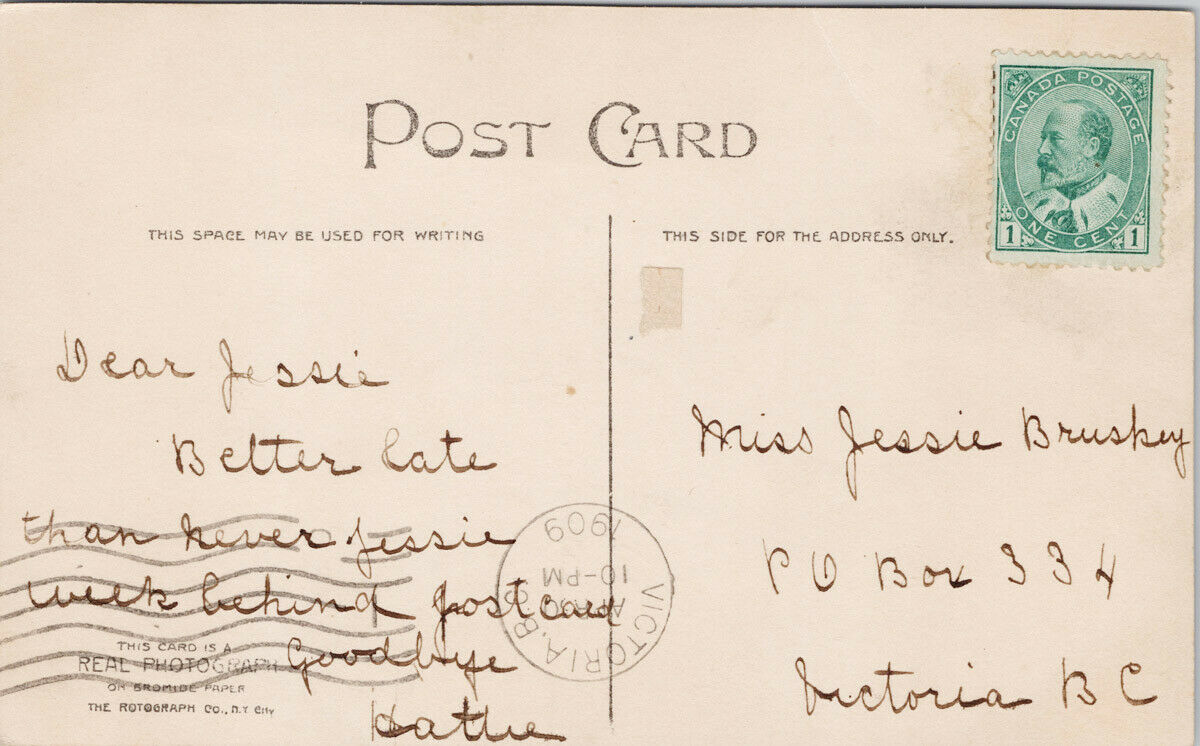 POST CARD
CANADA POSTAGE
ONE CENT
1 1
THIS SPACE MAY BE USED FOR WRITING
THIS SIDE FOR THE ADDRESS ONLY.
Dear Jessie
Better late
than never Jessie
week behind postcard
Goodbye
Hattie
VICTORIA, B.C.
10-PM
1909
Miss Jessie Bruskey
PO Box 334
Victoria BC
THIS CARD IS A
REAL PHOTOGRAPH
ON BROMIDE PAPER
THE ROTOGRAPH CO., N.Y. CITY